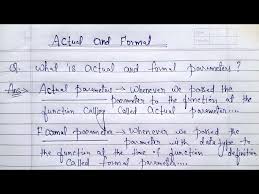 Actual and Formal
Q. What is actual and formal parameters ?
Ans → Actual parameters → Whenever we passed the
parameter to the function at the
function called Actual parameter....
Formal parameter → Whenever we passed the
parameter with data type to
the function at the time of function definition
called formal parameter....